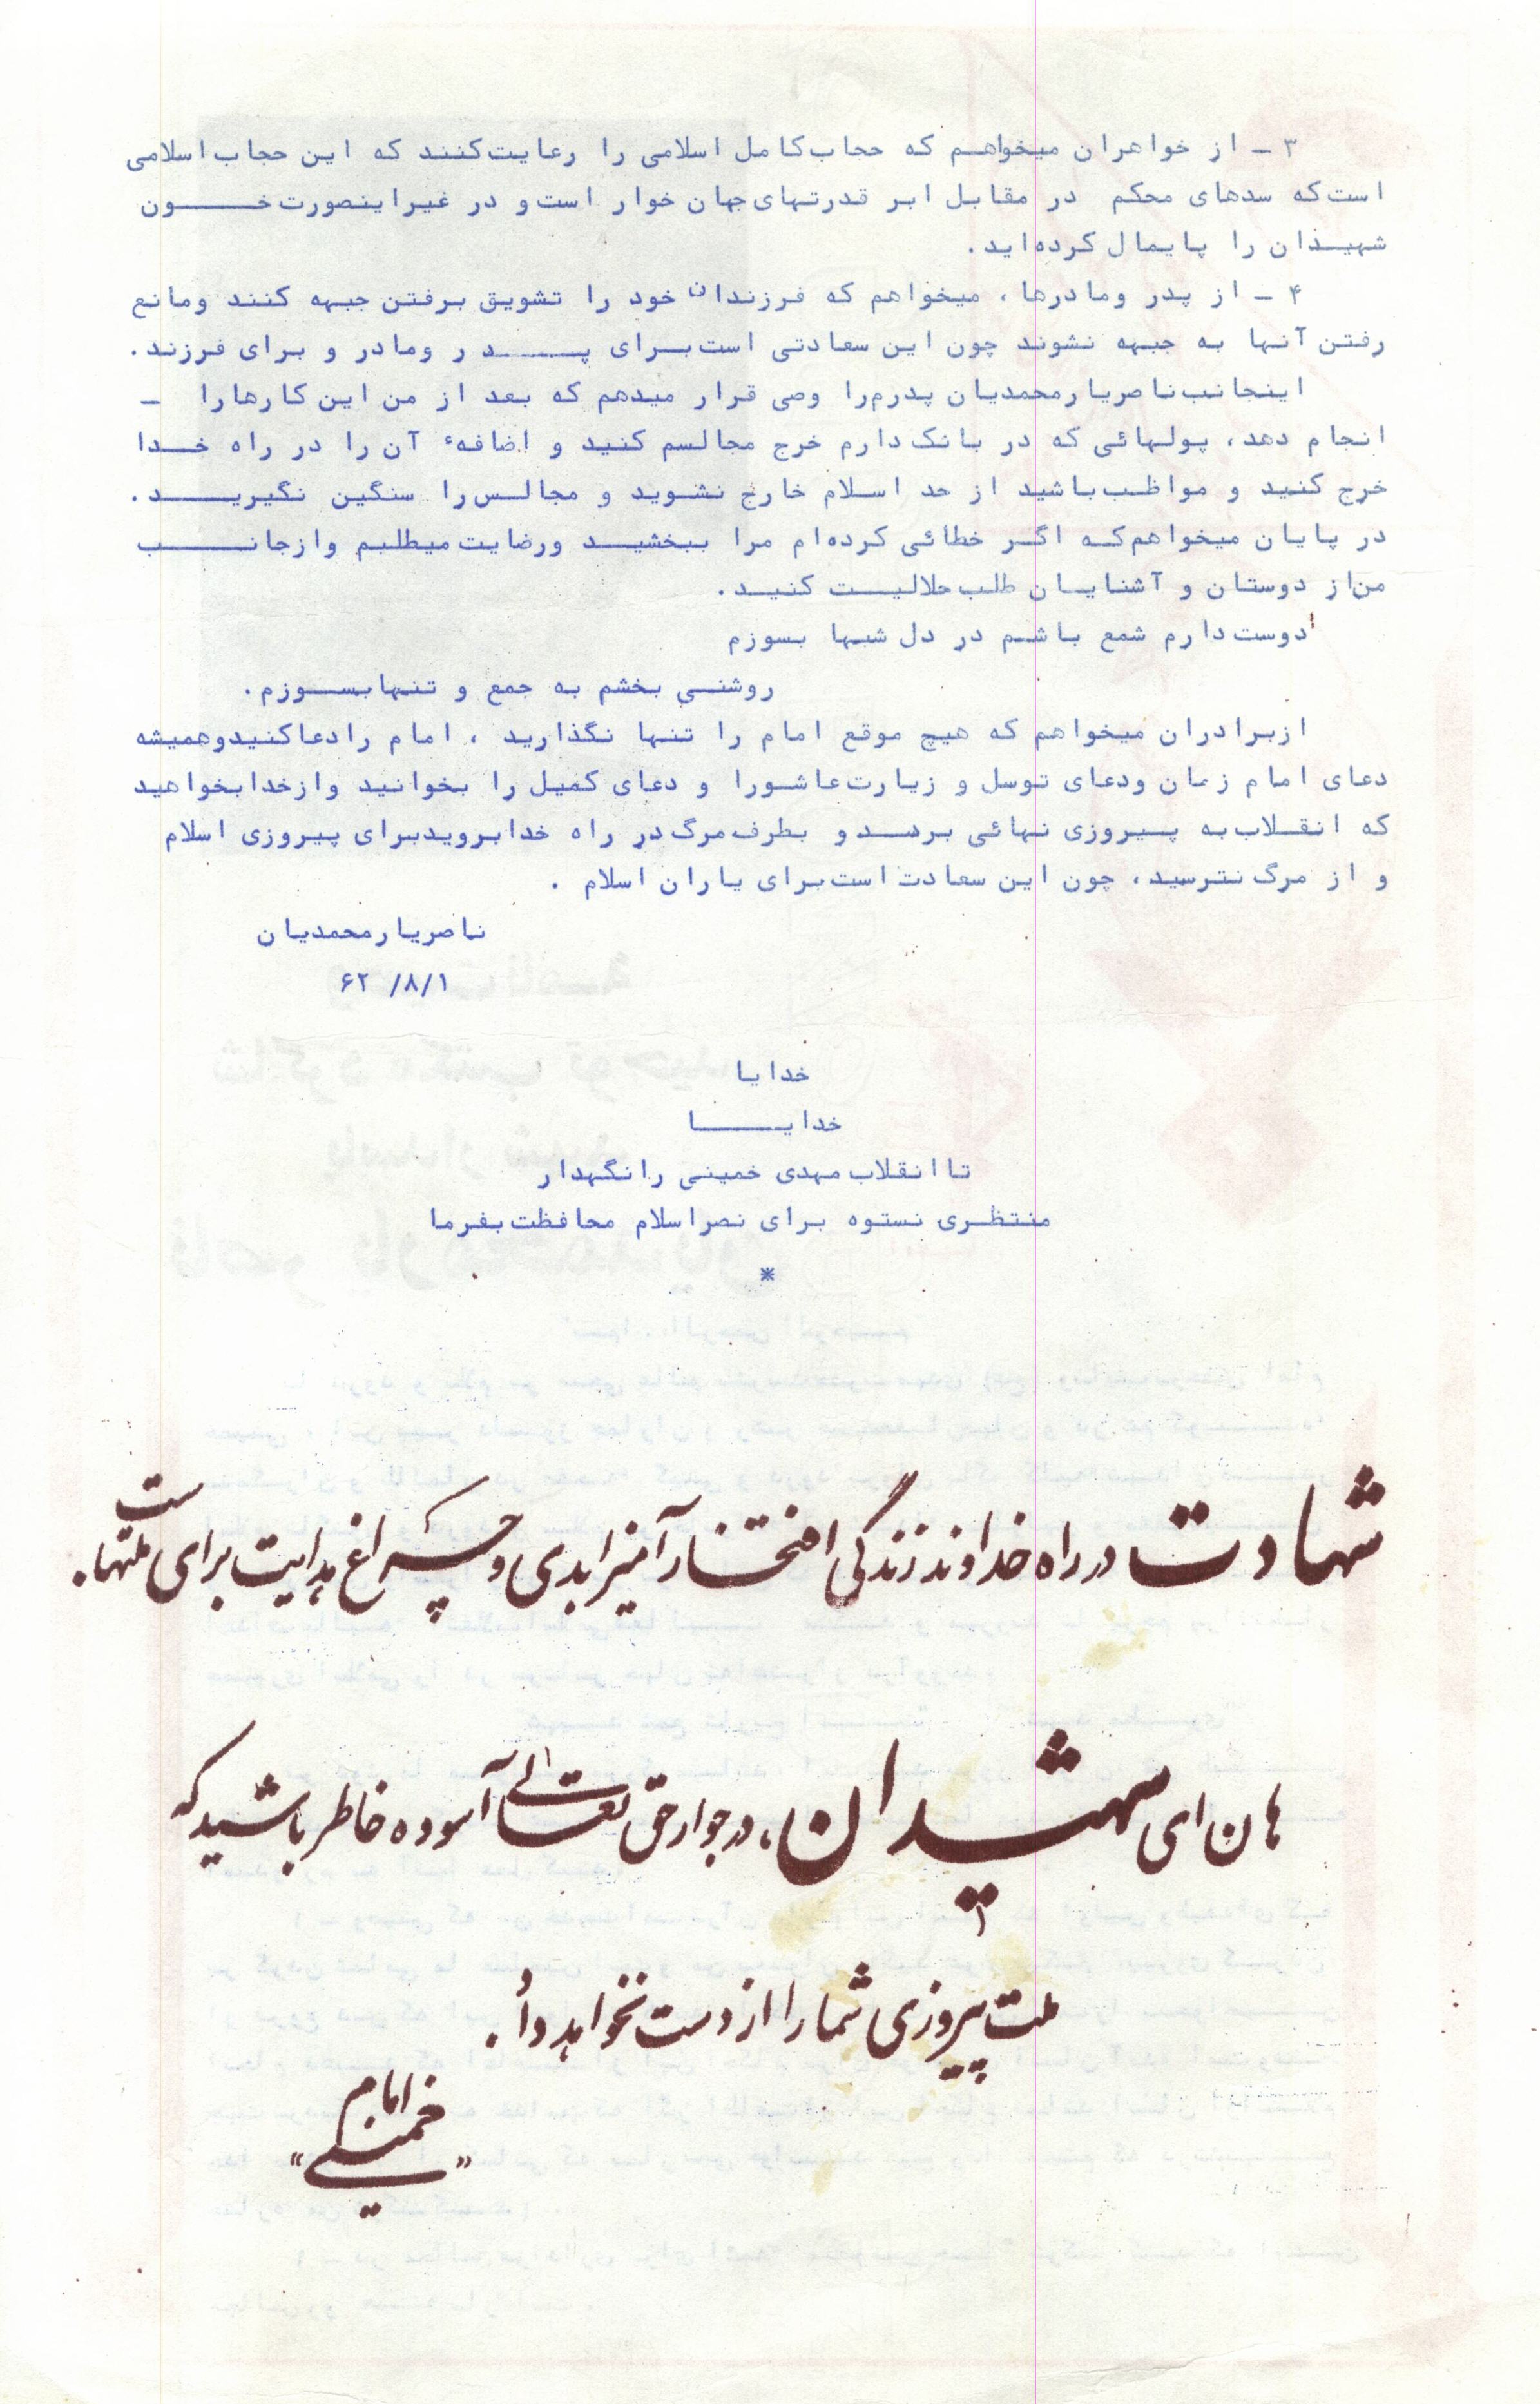 ۳ - از خواهران میخواهم که حجاب کامل اسلامی را رعایت کنند که این حجاب اسلامی
است که سدهای محکم در مقابل ابر قدرتهای جهان خوار است و در غیر اینصورت خون
شهیدان را پایمال کرده‌اید.
۴ - از پدر ومادرها، میخواهم که فرزندان خود را تشویق برفتن جبهه کنند ومانع
رفتن آنها به جبهه نشوند چون این سعادتی است برای پدر ومادر و برای فرزند.
اینجانب ناصریارمحمدیان پدرم را وصی قرار میدهم که بعد از من این کارها را -
انجام دهد، پولهائی که در بانک دارم خرج مجالسم کنید و اضافهٔ آن را در راه خدا
خرج کنید و مواظب باشید از حد اسلام خارج نشوید و مجالس را سنگین نگیرید.
در پایان میخواهم که اگر خطائی کرده‌ام مرا ببخشید ورضایت میطلبم وازجانب
من از دوستان و آشنایان طلب حلالیت کنید.
دوست دارم شمع باشم در دل شبها بسوزم
روشنی بخشم به جمع و تنها بسوزم.
ازبرادران میخواهم که هیچ موقع امام را تنها نگذارید، امام را دعا کنید وهمیشه
دعای امام زمان ودعای توسل و زیارت عاشورا و دعای کمیل را بخوانید وازخدا بخواهید
که انقلاب به پیروزی نهائی برسد و بطرف مرگ در راه خدا بروید برای پیروزی اسلام
و از مرگ نترسید، چون این سعادت است برای یاران اسلام .
ناصریارمحمدیان
۶۲ /۸/۱
خدایا
خدایا
تا انقلاب مهدی خمینی را نگهدار
منتظری نستوه برای نصر اسلام محافظت بفرما
*
شهادت در راه خداوند زندگی افتخارآمیز ابدی و چراغ هدایت برای ملتهاست.
هان ای شهیدان، در جوار حق تعالی آسوده خاطر باشید که
ملت پیروزی شما را از دست نخواهد داد.
امام
"خمینی"